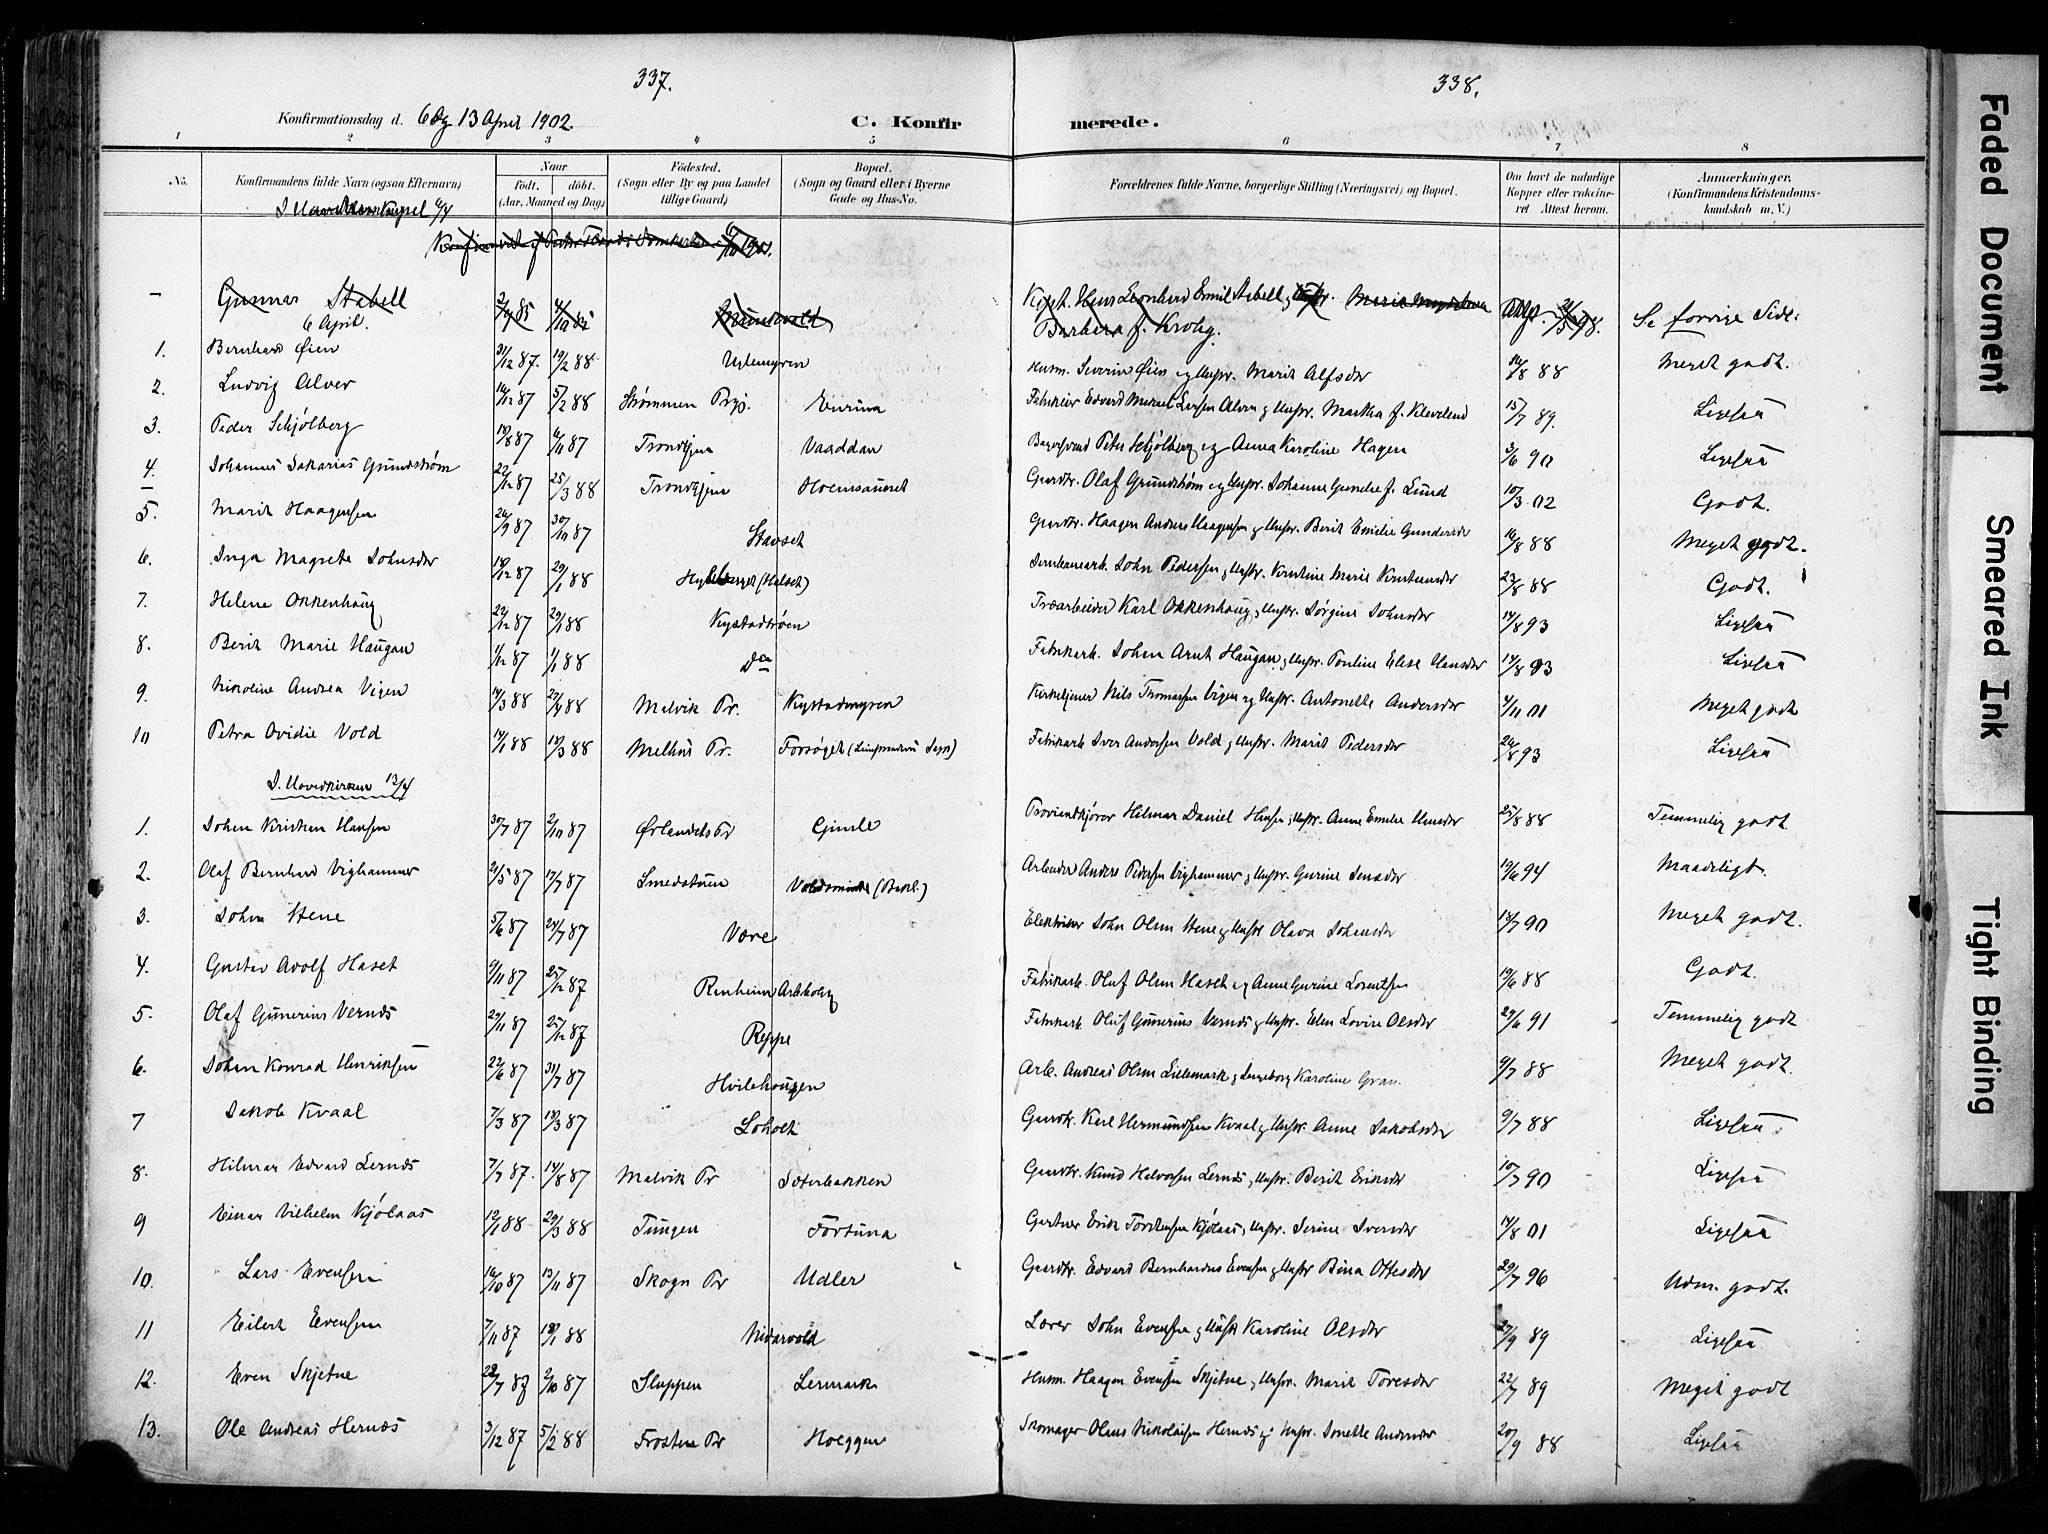 337.
338.
Konfirmationsdag d. 6 og 13 April 1902.
C. Konfirmerede.
1 2 3 4 5 6 7 8
No.
Konfirmandens fulde Navn (ogsaa Efternavn)
Naar
födt. döbt.
(Aar, Maaned og Dag)
Födested.
(Sogn eller By og paa Landet tillige Gaard)
Bopæl.
(Sogn og Gaard eller i Byerne Gade og Hus-No.
Forældrenes fulde Navne, borgerlige Stilling (Næringsvei) og Bopæl.
Om havt de naturlige Kopper eller vaccineret Attest herom.
Anmærkninger,
(Konfirmandens Kristendomskundskab m. V.)
Gunnar Stabell Se forrige Side.
6 April.
1. Bernhard Øien 31/12 87. 19/2 88 Uglemyren Husm. Severin Øien og Hustr. Marit Alfsdtr 16/8 88 Meget godt.
2. Ludvig Alver 16/12 87 5/2 88 Strømmen Prgj. 15/7 89. Ligesaa
3. Peder Schjølberg 18/8 87 6/11 87 Trondhjem Vaaddan Peter Schjølberg og Anna Karoline Hagen 3/6 90 Ligesaa
4. Johannes Sakarias Grundstrøm 22/12 87 25/3 88 Trondhjem Gaardbr. Olaf Grundstrøm og Hustr. Johanne f. Lund 10/3 02 Godt.
5. Marit Haagensen 26/9 87 30/10 87 Stavset Gaardbr. Haagen Anders Haagensen og Hustr. Berit Emilie Gundersdtr 16/8 88 Meget godt.
6. Inga Magrete Johnsdtr 18/12 87 29/1 88 (Halset) Jernbanearb. John Pedersen og Hustr. Kristine Marie 23/8 88 Godt.
7. Helene Okkenhaug 22/12 87 29/1 88 Kystadtrøen Træarbeider Karl Okkenhaug og Hustr. Jørgine Johnsdtr 14/8 93 Ligesaa
8. Berit Marie Haugan 1/12 87 1/1 88 Do Fabrikarb. Johan Arnt Haugan og Hustr. Pauline Elise Hansdtr 14/8 93 Ligesaa
9. Nikoline Andrea Vigen 14/3 88 27/4 88 Melvik Pr. Kystadmyren Kirketjener Nils Thomassen Vigen og Hustr. Antonette Andersdtr 4/11 01 Meget godt
10 Petra Ovidie Vold 14/1 88 18/3 88 Melhus Pr. Forsøget Fabrikarb Iver Andersen Vold og Hustr. Marit Pedersdtr 26/8 93 Ligesaa
I Hovedkirken 13/4
1. Johan Kristian Hansen 30/7 87 2/10 87 Ørlandets Pr Gimle Hilmar Daniel Hansen og Hustr. Anne Emilie Hansdtr 25/8 88 Temmelig godt
2. Olaf Bernhard Vighammer 21/5 87 17/7 87 Smedstuen Voldsminde (Bakl.) Arbeider Anders Pedersen Vighammer og Hustr. Gurine Jensdtr 19/6 94 Maadeligt.
3. John Stene 5/6 87 24/7 87 Være Elektriker John Olsen Stene og Hustr Olava Johansdtr 18/7 90 Meget godt.
4. Gustav Adolf Haset 9/11 87 25/12 87 Renheim Fabrikarb. Oluf Olsen Haset og Anne Gurine Lorentsen 19/6 88 Godt.
5. Olaf Gunerius Vernes 29/11 87 25/12 87 Reppe Fabrikarb Oluf Gunerius Vernes og Hustr. Elen Lovise Olsdtr 29/6 91 Temmelig godt
6. Johan Konrad Henriksen 22/6 87 31/7 87 Hvilehaugen Arb. Andreas Olsen Lillemark og Ingeborg Karoline Gran. 9/7 88 Meget godt.
7 Jakob Kvaal 7/3 87 18/3 87 Loholt Gaardbr. Karl Hermundsen Kvaal og Hustr. Anne Jakobsdtr 9/7 88 Ligesaa
8. Hilmar Edvard Lernes 7/7 87. 14/8 87 Malvik Pr Sæterbakken Gaardbr. Knud Halvorsen Lernes og Hustr. Berit Eriksdtr 10/7 90 Ligesaa
9 Einar Vilhelm Kjølaas 12/1 88 29/3 88 Tungen Fortuna Gartner Erik Torstensen Kjølaas og Hustr. Serine Iversdtr 14/8 01 Ligesaa
10. Lars Evensen 16/10 87 13/11 87 Skogn Pr Udler Gaardbr. Edvard Bernhardus Evensen og Hustr Bina Ottesdtr 29/7 96 Udm. godt.
11 Eilert Evensen 7/11 87 18/1 88 Nidarvold Lærer John Evensen og Hustr Karoline Olsdtr 27/9 89 Ligesaa
12. Even Skjetne 28/7 87 2/10 87 Sluppen Lermark Husm. Haagen Evensen Skjetne og Hustr. Marit Toresdtr 22/7 89 Meget godt
13. Ole Andreas Hernæs 3/12 87 5/2 88 Frosten Pr Hoeggen Skomager Olaus Nikolaisen Hernæs og Hustr. Jonette Andersdtr 20/9 88 Ligesaa
Faded Document
Smeared Ink
Tight Binding